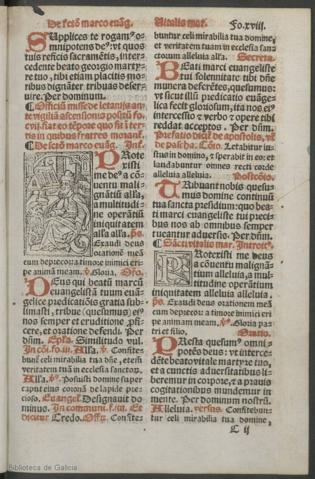 De scto marco euāg.
Uitalis mar.
Fo.xviii.
Supplices te rogamꝰ omnipotens deꝰ: vt quos
tuis reficis sacramētis, intercedente beato georgio marty-
re tuo, tibi etiam placitis moribus dignāter tribuas deseruire. Per dominum.
¶ Officiū misse de letanijs an
te vigiliā ascensionis
De scto marco euāg. Int.
PRote
xisti
me deꝰ a cō
uentu mali
gnātiū alľa,
a multitudi
ne operātiū
iniquitatem
alľa alľa. ps.
Exaudi deus
orationē meā
cum deprecor: a timore inimici eri
pe animā meam. ℣. Gloria. Oro.
DEus qui beatū marcū
euangelistā tuum euan
gelice predicatiōis gratia subli
masti, tribue (quesumus) eiꝰ
nos semper et eruditione ꝓfi
cere, et oratione defendi. Per
dn̄m. Epľa. Similitudo vul.
Alľa. ℣. Confitebunt
celi mirabilia tua dn̄e, etēi
veritatem tuā in ecclesia sanctoꝝ.
Alľa. ℣. Posuisti domine super
caput eius coronā de lapide precioso.
Euangel. Designauit dominus.
In communi. Et
dicitur Credo. Offꝝ. Confite-
buntur celi mirabilia tua domine,
et veritatem tuam in ecclesia san
ctorum alleluia alľa. Secreta.
BEati marci euangeliste
tui solennitate tibi dn̄e
munera deferētes, quesumus:
vt sicut illū predicatio euāge
lica fecit gloriosum, ita nos eiꝰ
intercessio & verbo & opere tibi
reddat acceptos. Per dn̄m.
Prefatio dicit' de apostolis, vl'
de pascha. Cōio. Letabitur iu-
stus in domino, & sperabit in eo: et
laudabuntur omnes recti corde
alleluia alleluia. Postcōio.
TRibuant nobis quesumus
domine continuū
tua sancta presidium: quo beati
marci euangeliste tui precibus
nos ab omnibus semper
tueantur aduersis. Per dn̄m.
¶ Sācti vitalis mar. Introitꝰ.
PRotexisti me deus
a cōuentu malignā
tium alleluia, a mul
titudine operātium
iniquitatem alleluia alleluia.
ps. Exaudi deus orationem meā
cum deprecor: a timore inimici eri
pe animam meam. ℣. Gloria pa-
tri et filio. Oratio.
PResta quesumꝰ omni-
potēs deus: vt interce-
dēte beato vitale martyre tuo,
et a cunctis aduersitatibus li-
beremur in corpore, & a prauis
cogitationibus mundemur in
mente. Per dominum nostrū.
Alleluia. versus. Confitebun-
tur celi mirabilia tua domine,
C ij
Biblioteca de Galicia